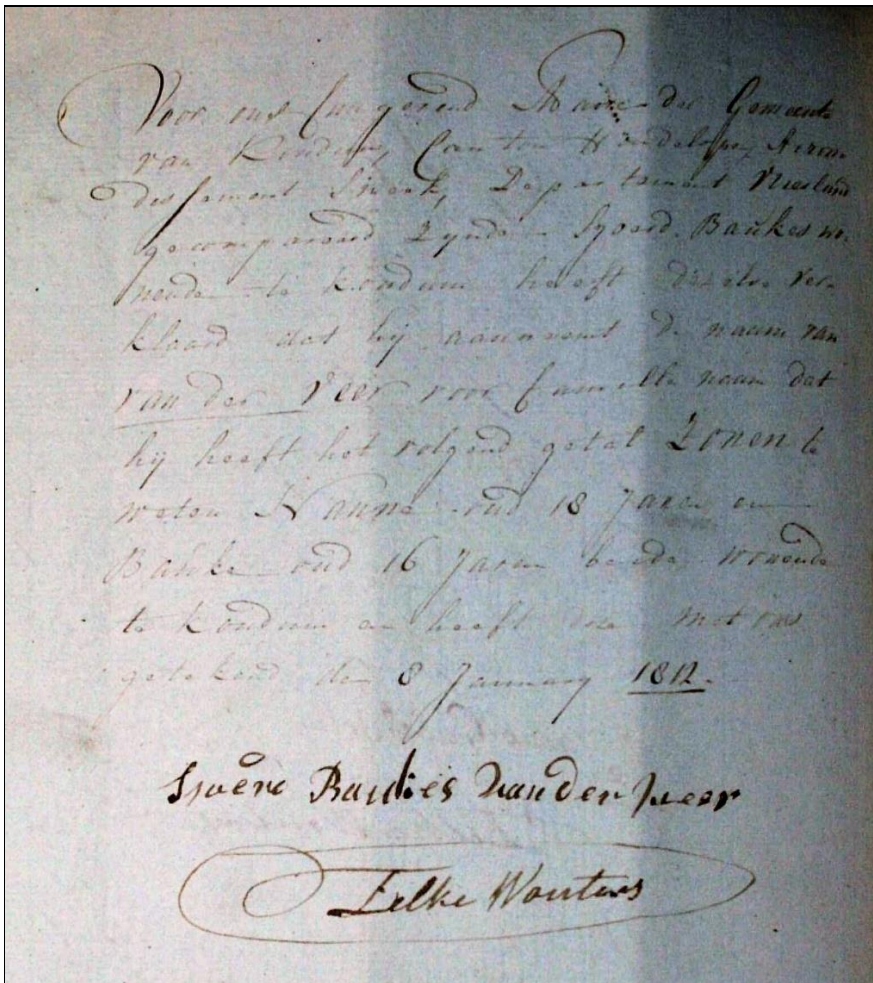 Voor ons fungerend Maire der Gemeente
van Koudum, Canton Hindelopen, Arron-
dissement Sneek, Departement Vriesland
gecompareerd zynde Sjoerd Baukes wo-
nende te Koudum heeft dezelve ver-
klaard dat hij aanneemt de naam van
van der Veer voor famille naam dat
hij heeft het volgend getal Zonen te
weten Nanne oud 18 Jaren en
Bauke oud 16 Jaren beide wonende
te Koudum en heeft deze met ons
getekend den 8 January 1812.
Sjoerd Baukes van der Veer
Eelke Wouters